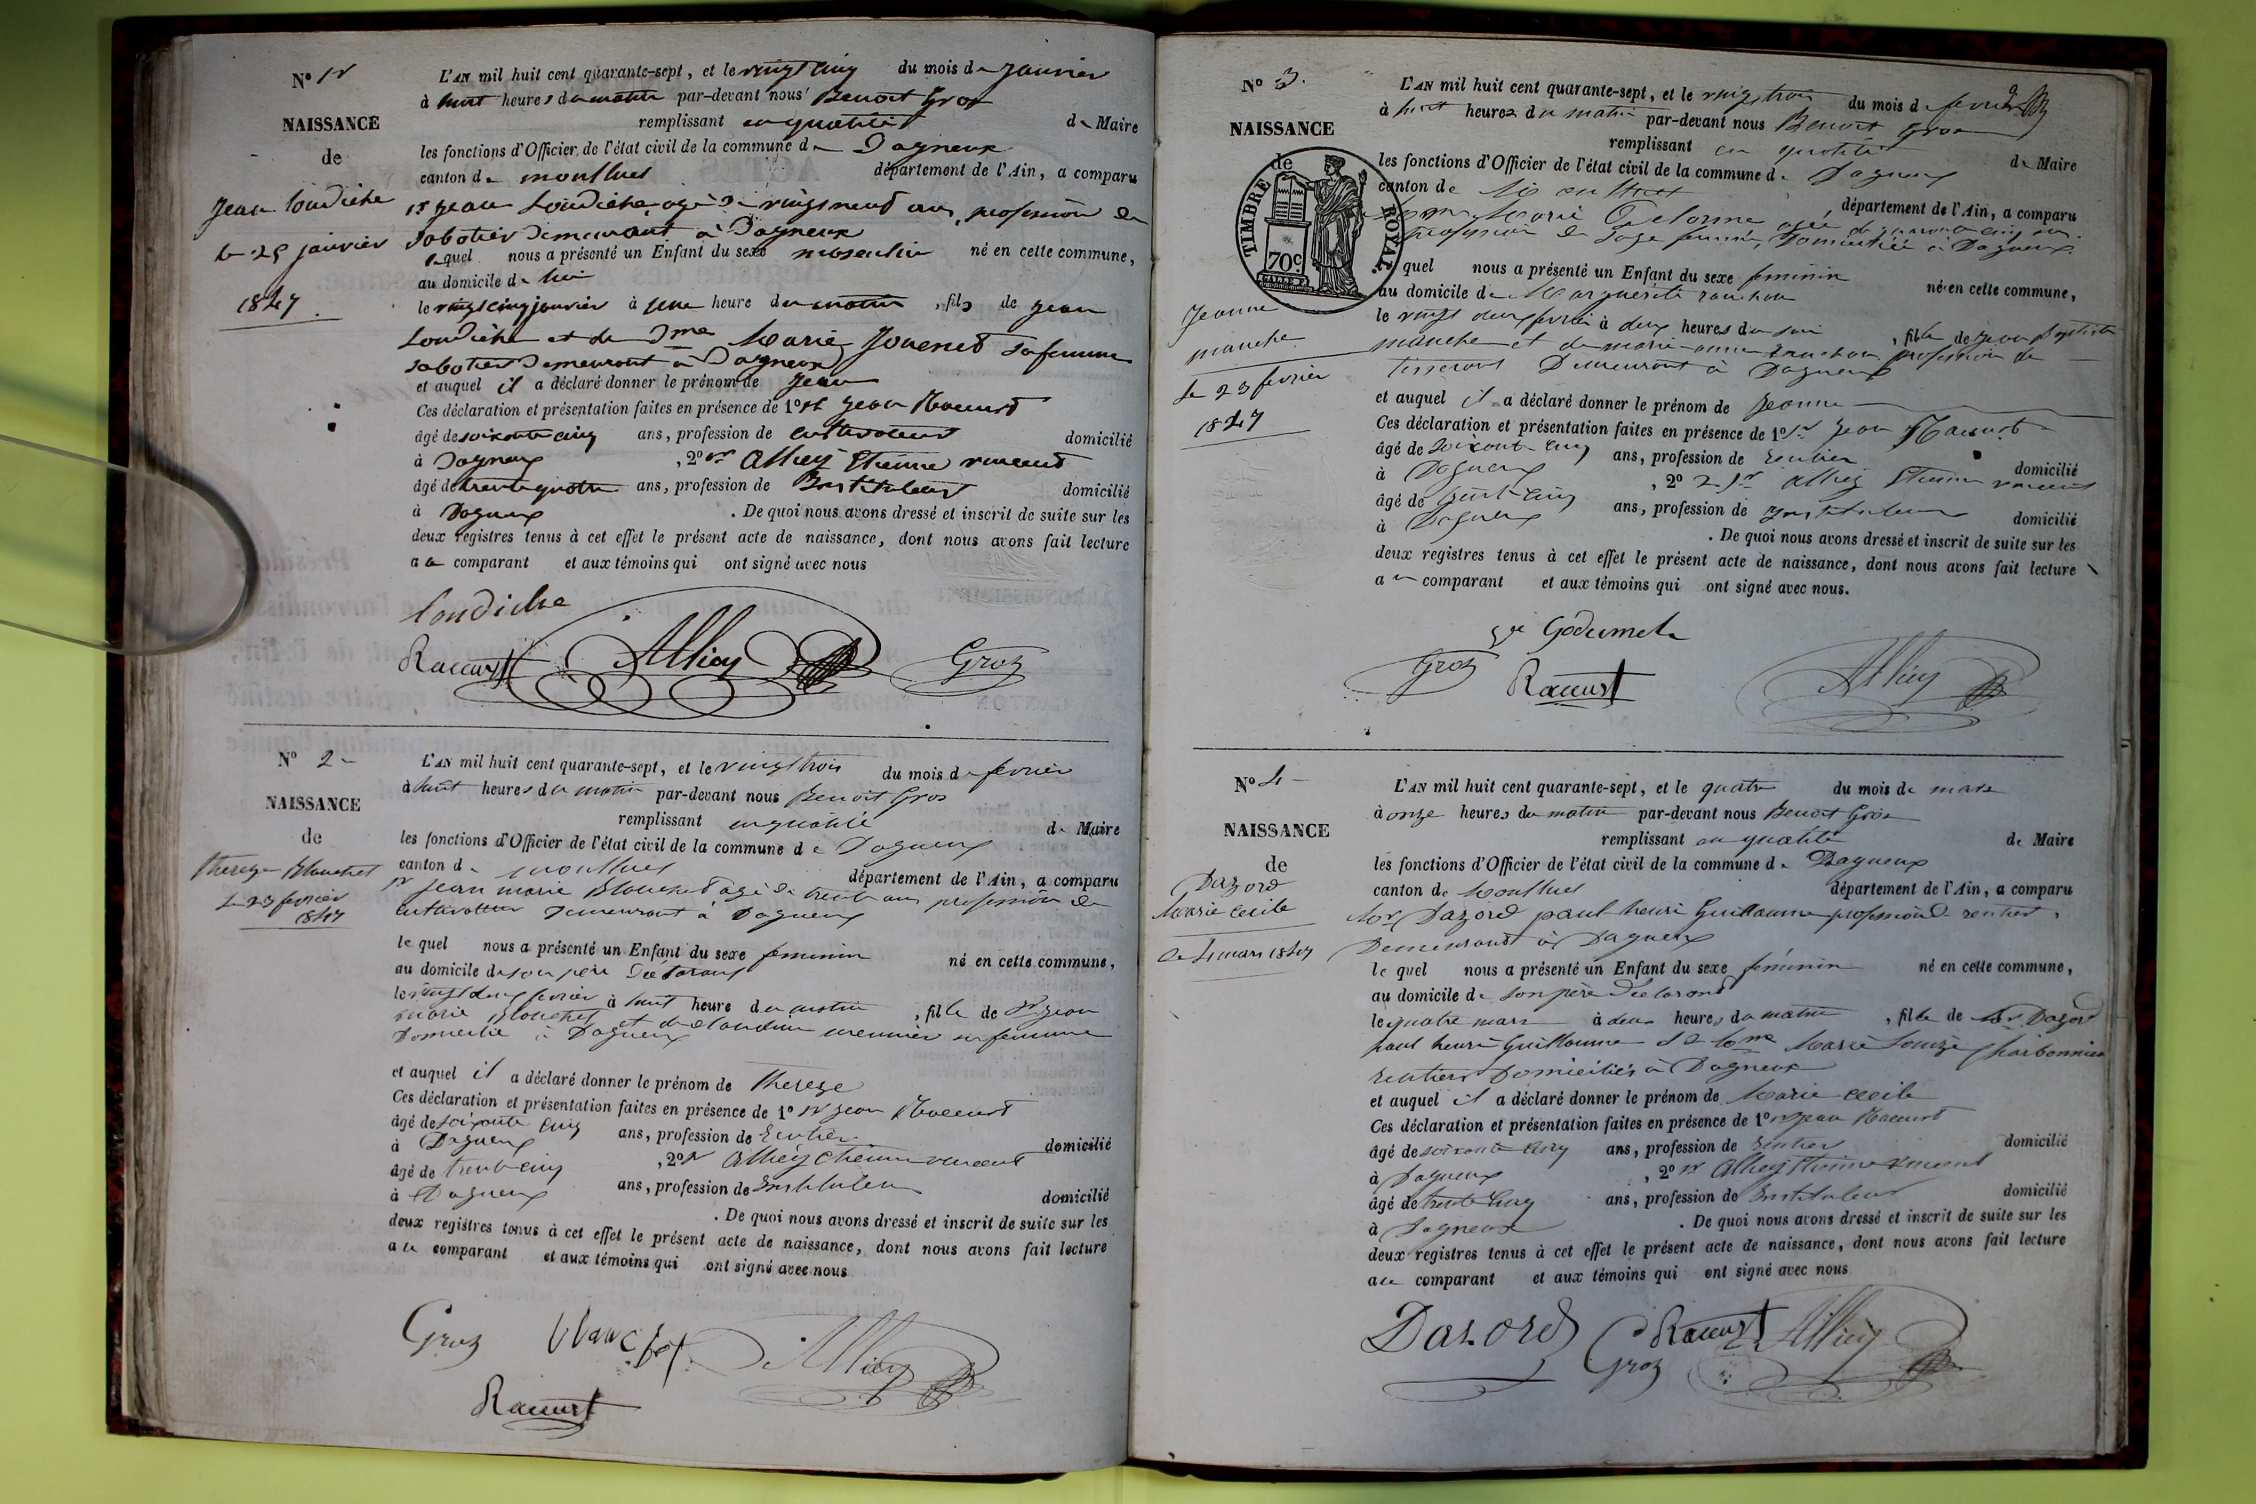 N° 1er
NAISSANCE
de
Jean Loudiche
le 25 janvier
1847
L'AN mil huit cent quarante-sept, et le vingt cinq du mois de janvier
à huit heures du matin par-devant nous Benoit Gros
remplissant en qualité de Maire
les fonctions d'Officier de l'état civil de la commune de Dagneux
canton de Montluel département de l'Ain, a comparu
sr Jean Loudiche agé de vingt neuf ans, profession de
sabotier demeurant à Dagneux
lequel nous a présenté un Enfant du sexe masculin né en cette commune,
au domicile de lui
le vingt cinq janvier à une heure du matin, fils de Jean
Loudiche et de Dme Marie Jouenet sa femme
sabotier demeurant à Dagneux
et auquel il a déclaré donner le prénom de Jean
Ces déclaration et présentation faites en présence de 1° sr Jean Racurt
âgé de soixante cinq ans, profession de cultivateur domicilié
à Dagneux, 2° sr Alliey Etienne vincent
âgé de trente quatre ans, profession de Instituteur domicilié
à Dagneux. De quoi nous avons dressé et inscrit de suite sur les
deux registres tenus à cet effet le présent acte de naissance, dont nous avons fait lecture
au comparant et aux témoins qui ont signé avec nous
Loudiche
Racurt Alliey Groz
N° 2
NAISSANCE
de
therese Blanchet
le 23 fevrier
1847
L'AN mil huit cent quarante-sept, et le vingt trois du mois de fevrier
à huit heures du matin par-devant nous Benoit Gros
remplissant en qualité de Maire
les fonctions d'Officier de l'état civil de la commune de Dagneux
canton de montluel département de l'Ain, a comparu
sr Jean marie Blanchet agé de trente ans profession de
cultivateur demeurant à Dagneux
le quel nous a présenté un Enfant du sexe feminin né en cette commune,
au domicile de son père déclarant
le vingt deux fevrier à huit heure du matin, fille de sr Jean
marie Blanchet et de claudine meunier sa femme
Domicilié à Dagneux
et auquel il a déclaré donner le prénom de therese
Ces déclaration et présentation faites en présence de 1° sr Jean Racurt
âgé de soixante cinq ans, profession de Rentier domicilié
à Dagneux, 2° sr Alliey Etienne vincent
âgé de trente cinq ans, profession de Instituteur domicilié
à Dagneux. De quoi nous avons dressé et inscrit de suite sur les
deux registres tenus à cet effet le présent acte de naissance, dont nous avons fait lecture
au comparant et aux témoins qui ont signé avec nous
Groz blanchet Alliey
Racurt
N° 3.
NAISSANCE
de
TIMBRE ROYAL.
70c.
Jeanne
manche
le 23 fevrier
1847
L'AN mil huit cent quarante-sept, et le vingt trois du mois de fevrier
à huit heures du matin par-devant nous Benoit Gros
remplissant en qualité de Maire
les fonctions d'Officier de l'état civil de la commune de Dagneux
canton de Montluel département de l'Ain, a comparu
Marie Delorme agée de quarante cinq ans
profession de Sage femme, Domiciliée à Dagneux
quel nous a présenté un Enfant du sexe feminin né en cette commune,
au domicile de Marguerite
le vingt deux fevrier à deux heures du soir, fille de Jean Baptiste
manche et de marie anne profession de
tisserant Demeurant à Dagneux
et auquel il a déclaré donner le prénom de Jeanne
Ces déclaration et présentation faites en présence de 1° sr Jean Racurt
âgé de soixante cinq ans, profession de Rentier domicilié
à Dagneux, 2° sr Alliey Etienne vincent
âgé de trente cinq ans, profession de Instituteur domicilié
à Dagneux. De quoi nous avons dressé et inscrit de suite sur les
deux registres tenus à cet effet le présent acte de naissance, dont nous avons fait lecture
a comparant et aux témoins qui ont signé avec nous.
Groz Racurt Alliey
N° 4
NAISSANCE
de
Dazord
Marie Cecile
le 4 mars 1847
L'AN mil huit cent quarante-sept, et le quatre du mois de mars
à onze heures du matin par-devant nous Benoit Gros
remplissant en qualité de Maire
les fonctions d'Officier de l'état civil de la commune de Dagneux
canton de Montluel département de l'Ain, a comparu
Mr Dazord paul henri Guillaume profession de rentier,
Demeurant à Dagneux
le quel nous a présenté un Enfant du sexe féminin né en cette commune,
au domicile de son père déclarant
le quatre mars à deux heures du matin, fille de Mr Dazord
paul henri Guillaume et de Dme Marie Louize Charbonnier
rentiers Domiciliés à Dagneux
et auquel il a déclaré donner le prénom de Marie Cecile
Ces déclaration et présentation faites en présence de 1° sr Jean Racurt
âgé de soixante cinq ans, profession de rentier domicilié
à Dagneux, 2° sr Alliey Etienne vincent
âgé de trente cinq ans, profession de Instituteur domicilié
à Dagneux. De quoi nous avons dressé et inscrit de suite sur les
deux registres tenus à cet effet le présent acte de naissance, dont nous avons fait lecture
au comparant et aux témoins qui ont signé avec nous
Dazord Groz Racurt Alliey